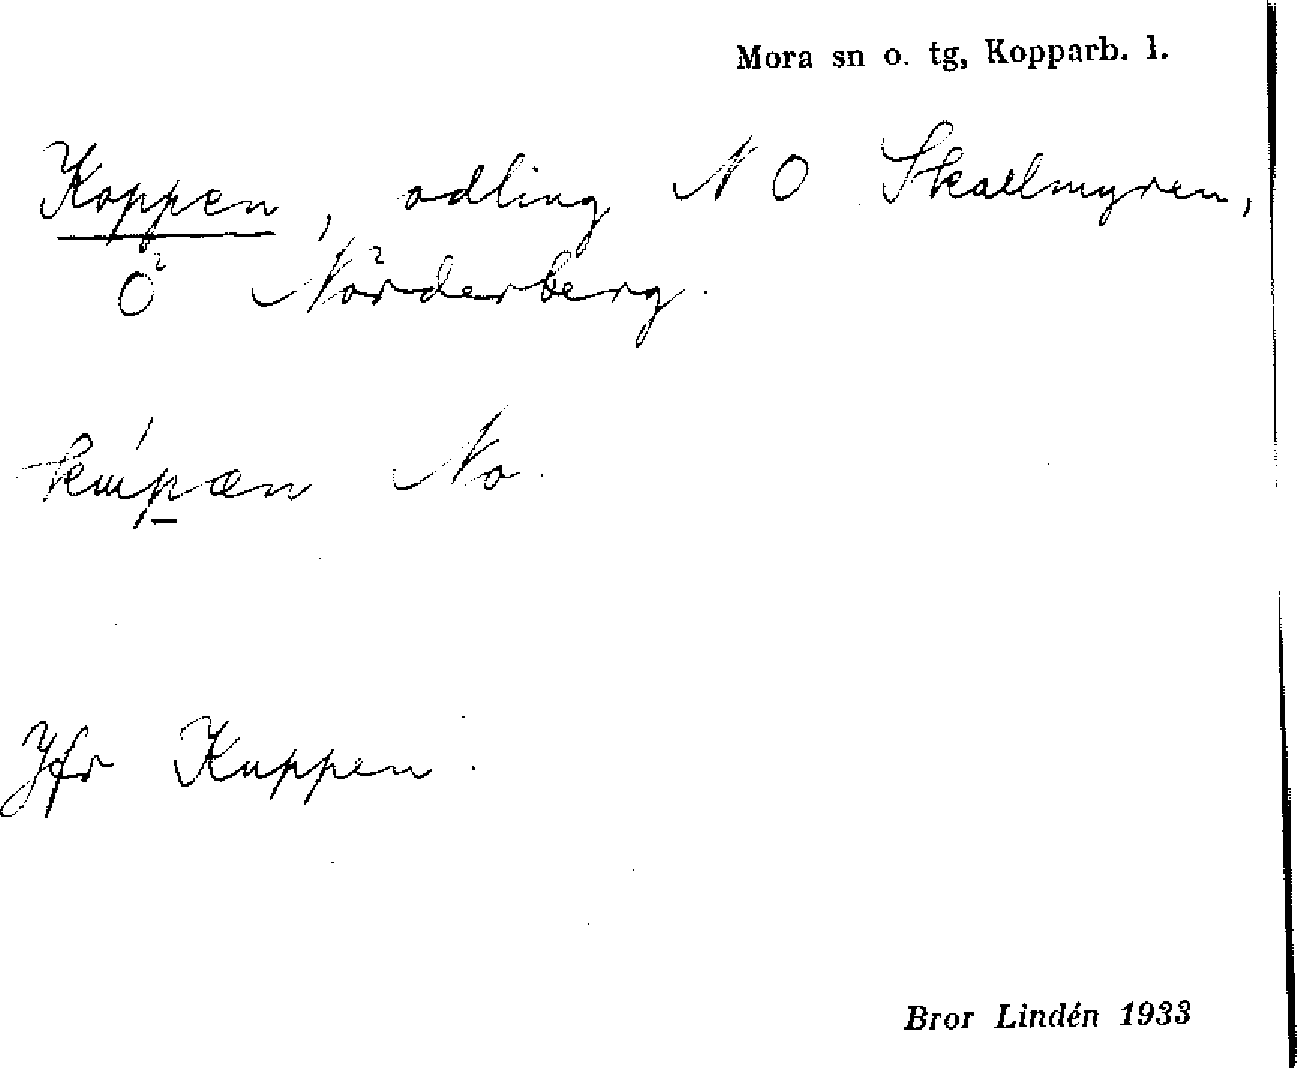 Mora sn o. tg, Kopparb. l.
Koppen, odling N O Skallmyren,
O² Nörderberg.
No.
Jfr Kuppen.
Bror Lindén 1933